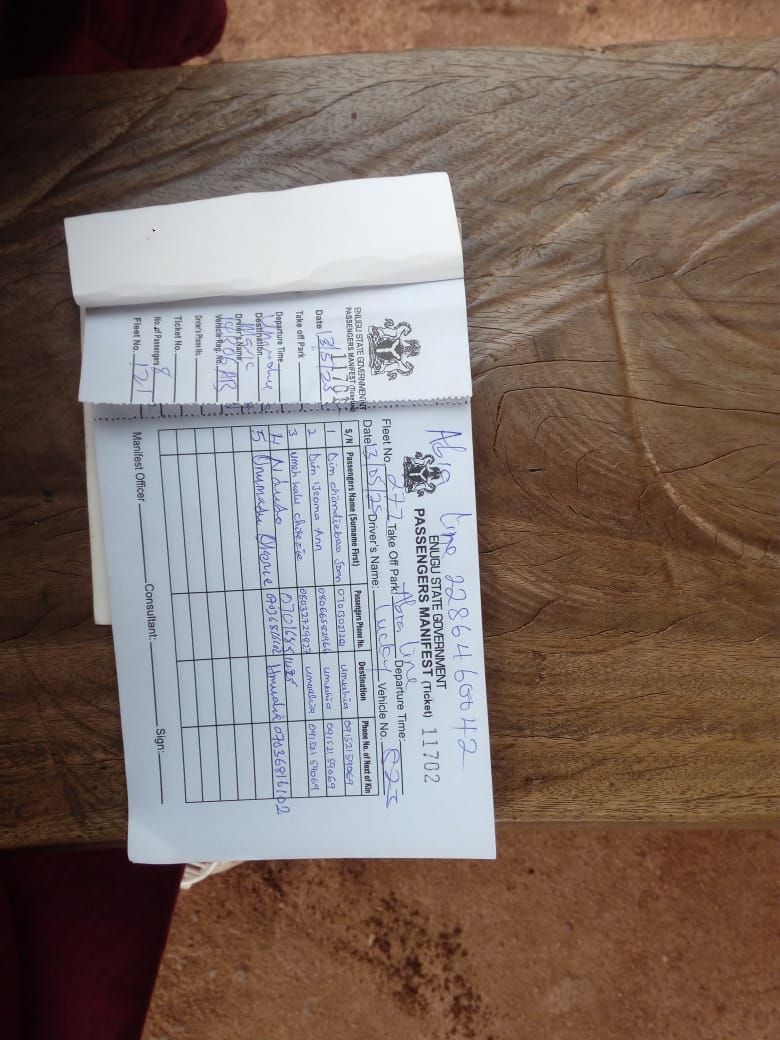 ENUGU STATE GOVERNMENT
PASSENGERS MANIFEST (Ticket)
11702
Date 13/5/25
Take off Park
Departure Time
Destination Umuahia
Driver's Name
Vehicle Reg. No.
Driver's Phone No.
Ticket No.
No. of Passengers 8
Fleet No.
Abia line 2286460042
ENUGU STATE GOVERNMENT
PASSENGERS MANIFEST (Ticket) 11702
Fleet No. 277 Take Off Park: Abia line Departure Time:
Date 13/05/25 Driver's Name: Lucky Vehicle No.
S/N Passengers Name (Surname First) Passengers Phone No. Destination Phone No. of Next of Kin
1 Dim John umuahia 09152159069
2 Dim Ijeoma Ann 08066582966 umuahia 09152159069
3 umeh kalu 08032729827 umuahia 09152159069
4 Ndudo
5 07036816102 Umuahia 07036816102
Manifest Officer Consultant: Sign: